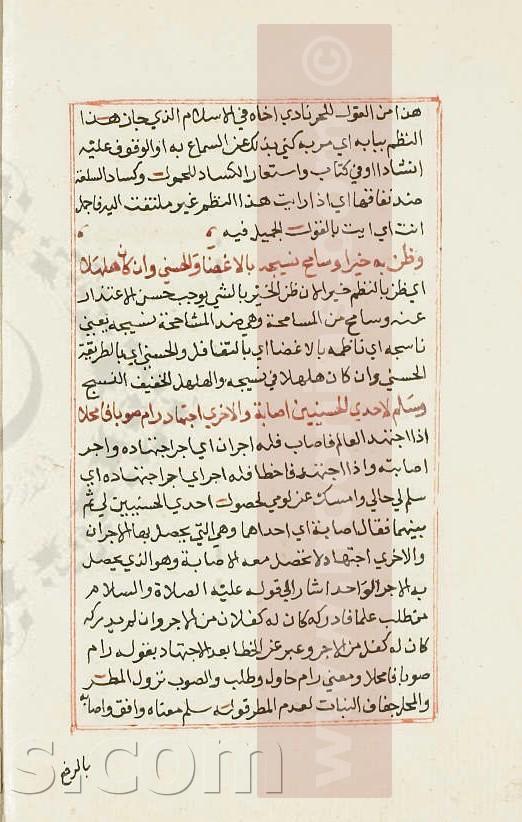 هذا من القول للحر نادي اخاه في الاسلام الذي جاز هذا
النظم ببابه اي مر به كني بذلك عن السماع به او الوقوف عليه
انشادا او في كتاب واستعار الكساد للخمول وكساد السلعة
ضد نفاقها اي اذا رايت هذا النظم غير ملتفت اليه فاجمل
انت اي ايت بالقول الجميل فيه
وظن به خيرا وسامح نسيجه بالاغضا والحسني وان كان هلهلا
اي ظن بالنظم خيرا لان ظن الخير بالشي يوجب حسن الاعتذار
عنه وسامح من المسامحة وهي ضد المشاححة نسيجه يعني
ناسجه اي ناظمه بالاغضا اي بالتغافل والحسني اي بالطريقة
الحسني وان كان هلهلا في نسيجه والهلهل الخفيف النسج
وسلم لاحدي الحسنيين اصابة والاخري اجتهاد رام صوبا فامحلا
اذا اجتهد العالم فاصاب فله اجران اي اجر اجتهاده واجر
اصابته واذا اجتهد فاخطا فله اجر اي اجر اجتهاده اي
سلم لي حالي وامسك عن لومي لحصول احدي الحسنيين لي ثم
بينهما فقال اصابة اي احداهما وهي التي يحصل بها الاجران
والاخري اجتهاد لا تحصل معه الاصابة وهو الذي يحصل
به الاجر الواحد اشار الي قوله عليه الصلاة والسلام
من طلب علما فادركه كان له كفلان من الاجر وان لم يدركه
كان له كفل من الاجر وعبر عن الخطا بعد الاجتهاد بقوله رام
صوبا فامحلا ومعني رام حاول وطلب والصوب نزول المطر
والمحل جفاف النبات لعدم المطر قوله سلم معناه وافق واصابة
بالرفع
s.com
www.
©